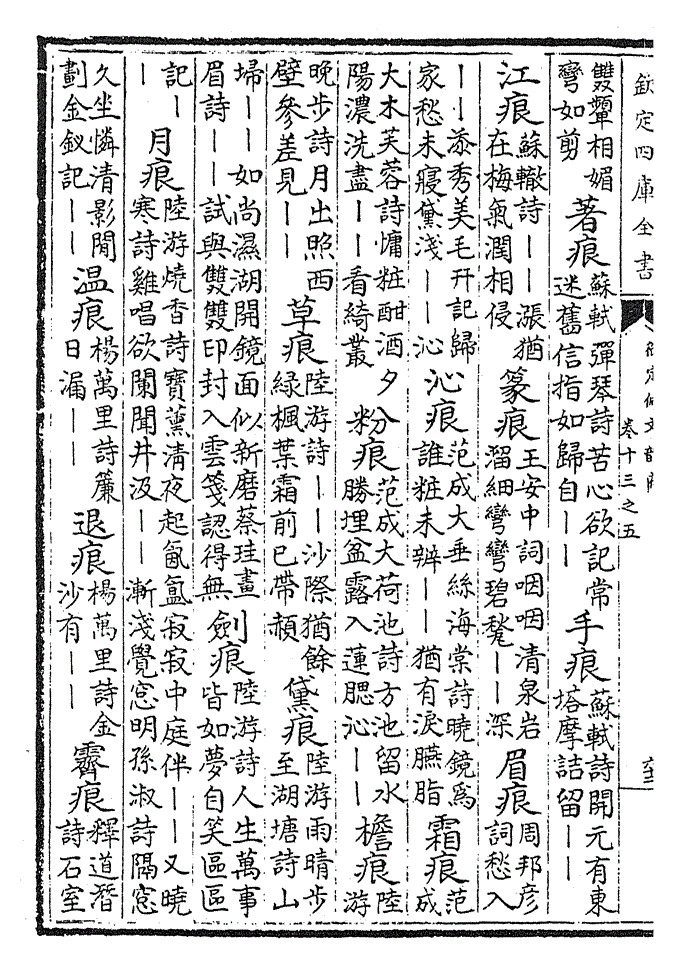 欽定四庫全書
御定佩文韻府
卷十三之五
雙顰相媚彎如剪 著痕 蘇軾彈琴詩苦心欲記常迷舊信指如歸自—— 手痕 蘇軾詩開元有東塔摩詰留——
江痕 蘇轍詩——漲猶在梅氣潤相侵 篆痕 王安中詞咽咽清泉岩溜細彎彎碧甃——深 眉痕 周邦彦詞愁入
——添秀美毛幵記歸家愁未寢黛淺—— 沁痕 范成大垂絲海棠詩曉鏡爲誰粧未辨——猶有淚臙脂 霜痕 范成
大木芙蓉詩慵粧酣酒夕陽濃洗盡——看綺叢 粉痕 范成大荷池詩方池留水勝埋盆露入蓮腮沁—— 檐痕 陸游
晚步詩月出照西壁參差見—— 草痕 陸游詩——沙際猶餘緑楓葉霜前已帶赬 黛痕 陸游雨晴步至湖塘詩山
埽——如尚濕湖開鏡面似新磨蔡珪畫眉詩——試與雙雙印封入雲箋認得無 劍痕 陸游詩人生萬事皆如夢自笑區區
記—— 月痕 陸游燒香詩寶薰清夜起氤氲寂寂中庭伴——又曉寒詩雞唱欲闌聞井汲——漸淺覺窓明孫淑詩隔窓
久坐憐清影閒劃金釵記—— 温痕 楊萬里詩簾日漏—— 退痕 楊萬里詩金沙有—— 霽痕 釋道潛詩石室